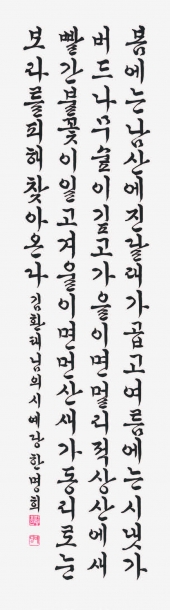 봄에는남산에진달래가곱고여름에는시냇가
버드나무숲이깊고가을이면멀리적상산에새
빨간불꽃이일고겨울이면먼산새가동리로눈
보라를피해찾아온다 김환태님의시 한명희